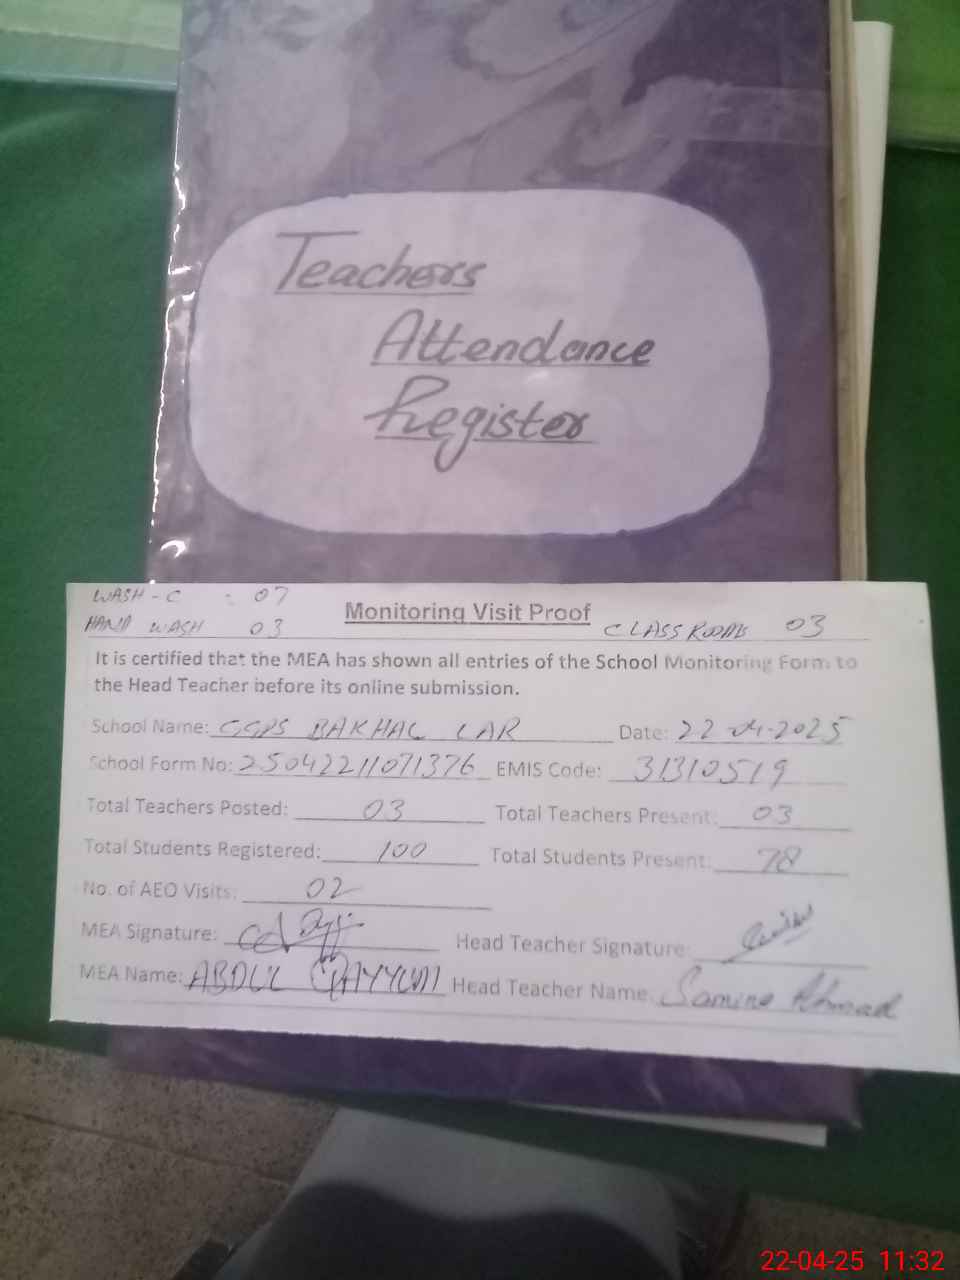 Teachers
Attendance
Register
WASH-C : 07
HAND WASH 03
Monitoring Visit Proof
CLASS ROOMS 03
It is certified that the MEA has shown all entries of the School Monitoring Form to
the Head Teacher before its online submission.
School Name: GGPS BAKHAL LAR Date: 22-04-2025
School Form No: 25042211071376 EMIS Code: 31310519
Total Teachers Posted: 03 Total Teachers Present: 03
Total Students Registered: 100 Total Students Present: 78
No. of AEO Visits: 02
MEA Signature: Head Teacher Signature:
MEA Name: ABDUL QAYYUM Head Teacher Name: Samina Ahmad
22-04-25 11:32